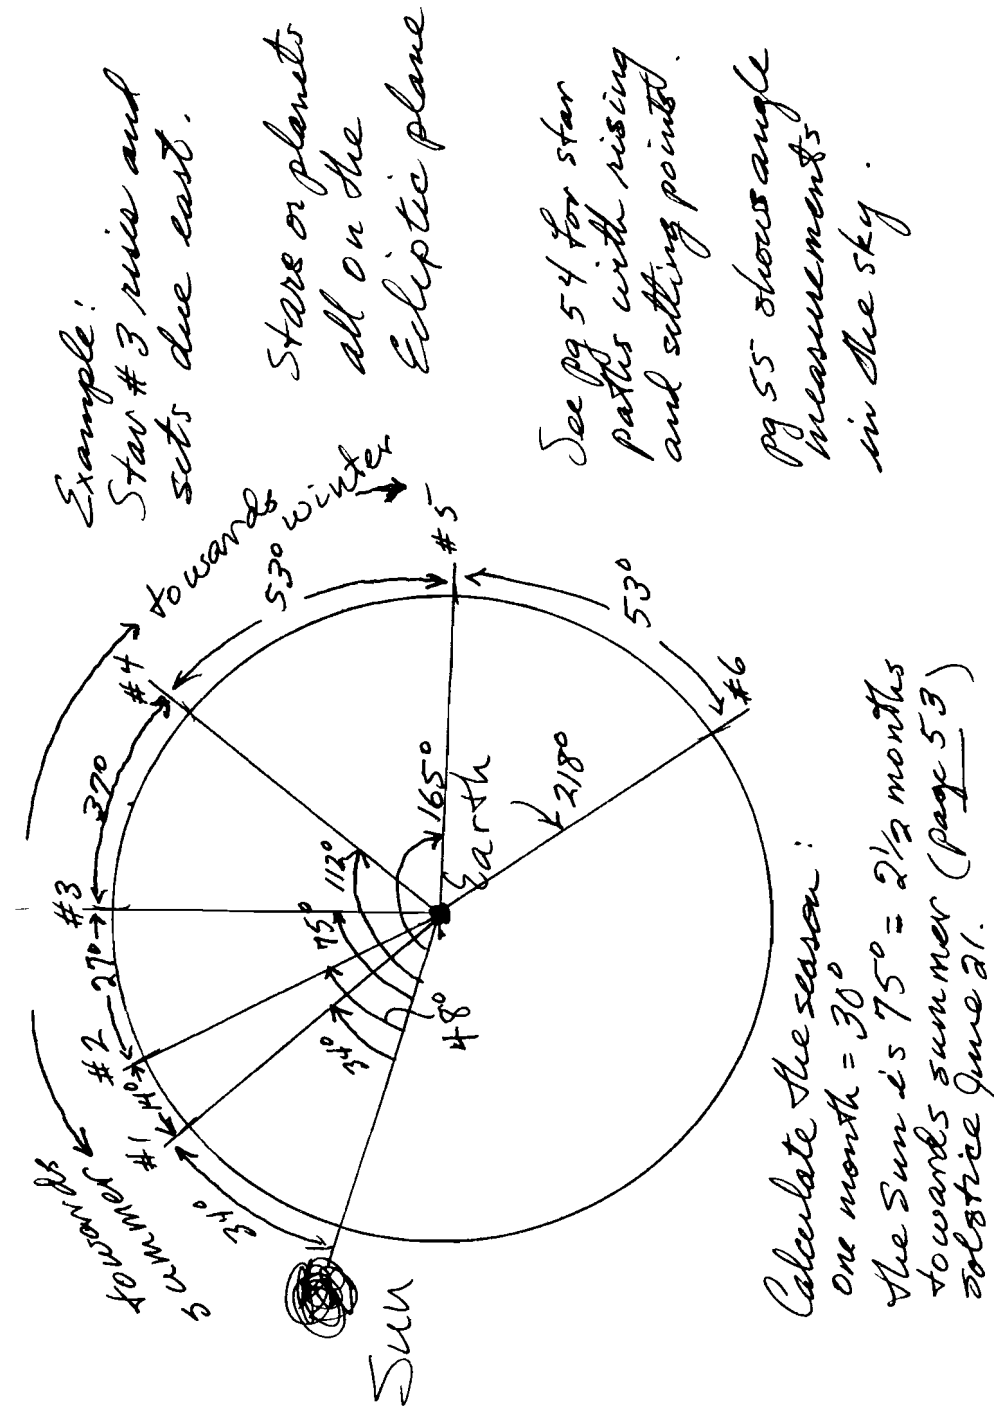 Example:
Star #3 rises and
sets due east.
Stars or planets
all on the
Ecliptic plane
See pg 54 for star
paths with rising
and setting points.
pg 55 shows angle
measurements
in the sky.
towards
summer
towards
winter
#1
#2
#3
#4
#5
#6
34°
14°
27°
37°
53°
53°
34°
48°
75°
112°
165°
218°
Earth
Sun
Calculate the season:
one month = 30°
the Sun is 75° = 2 1/2 months
towards summer (page 53)
solstice June 21.